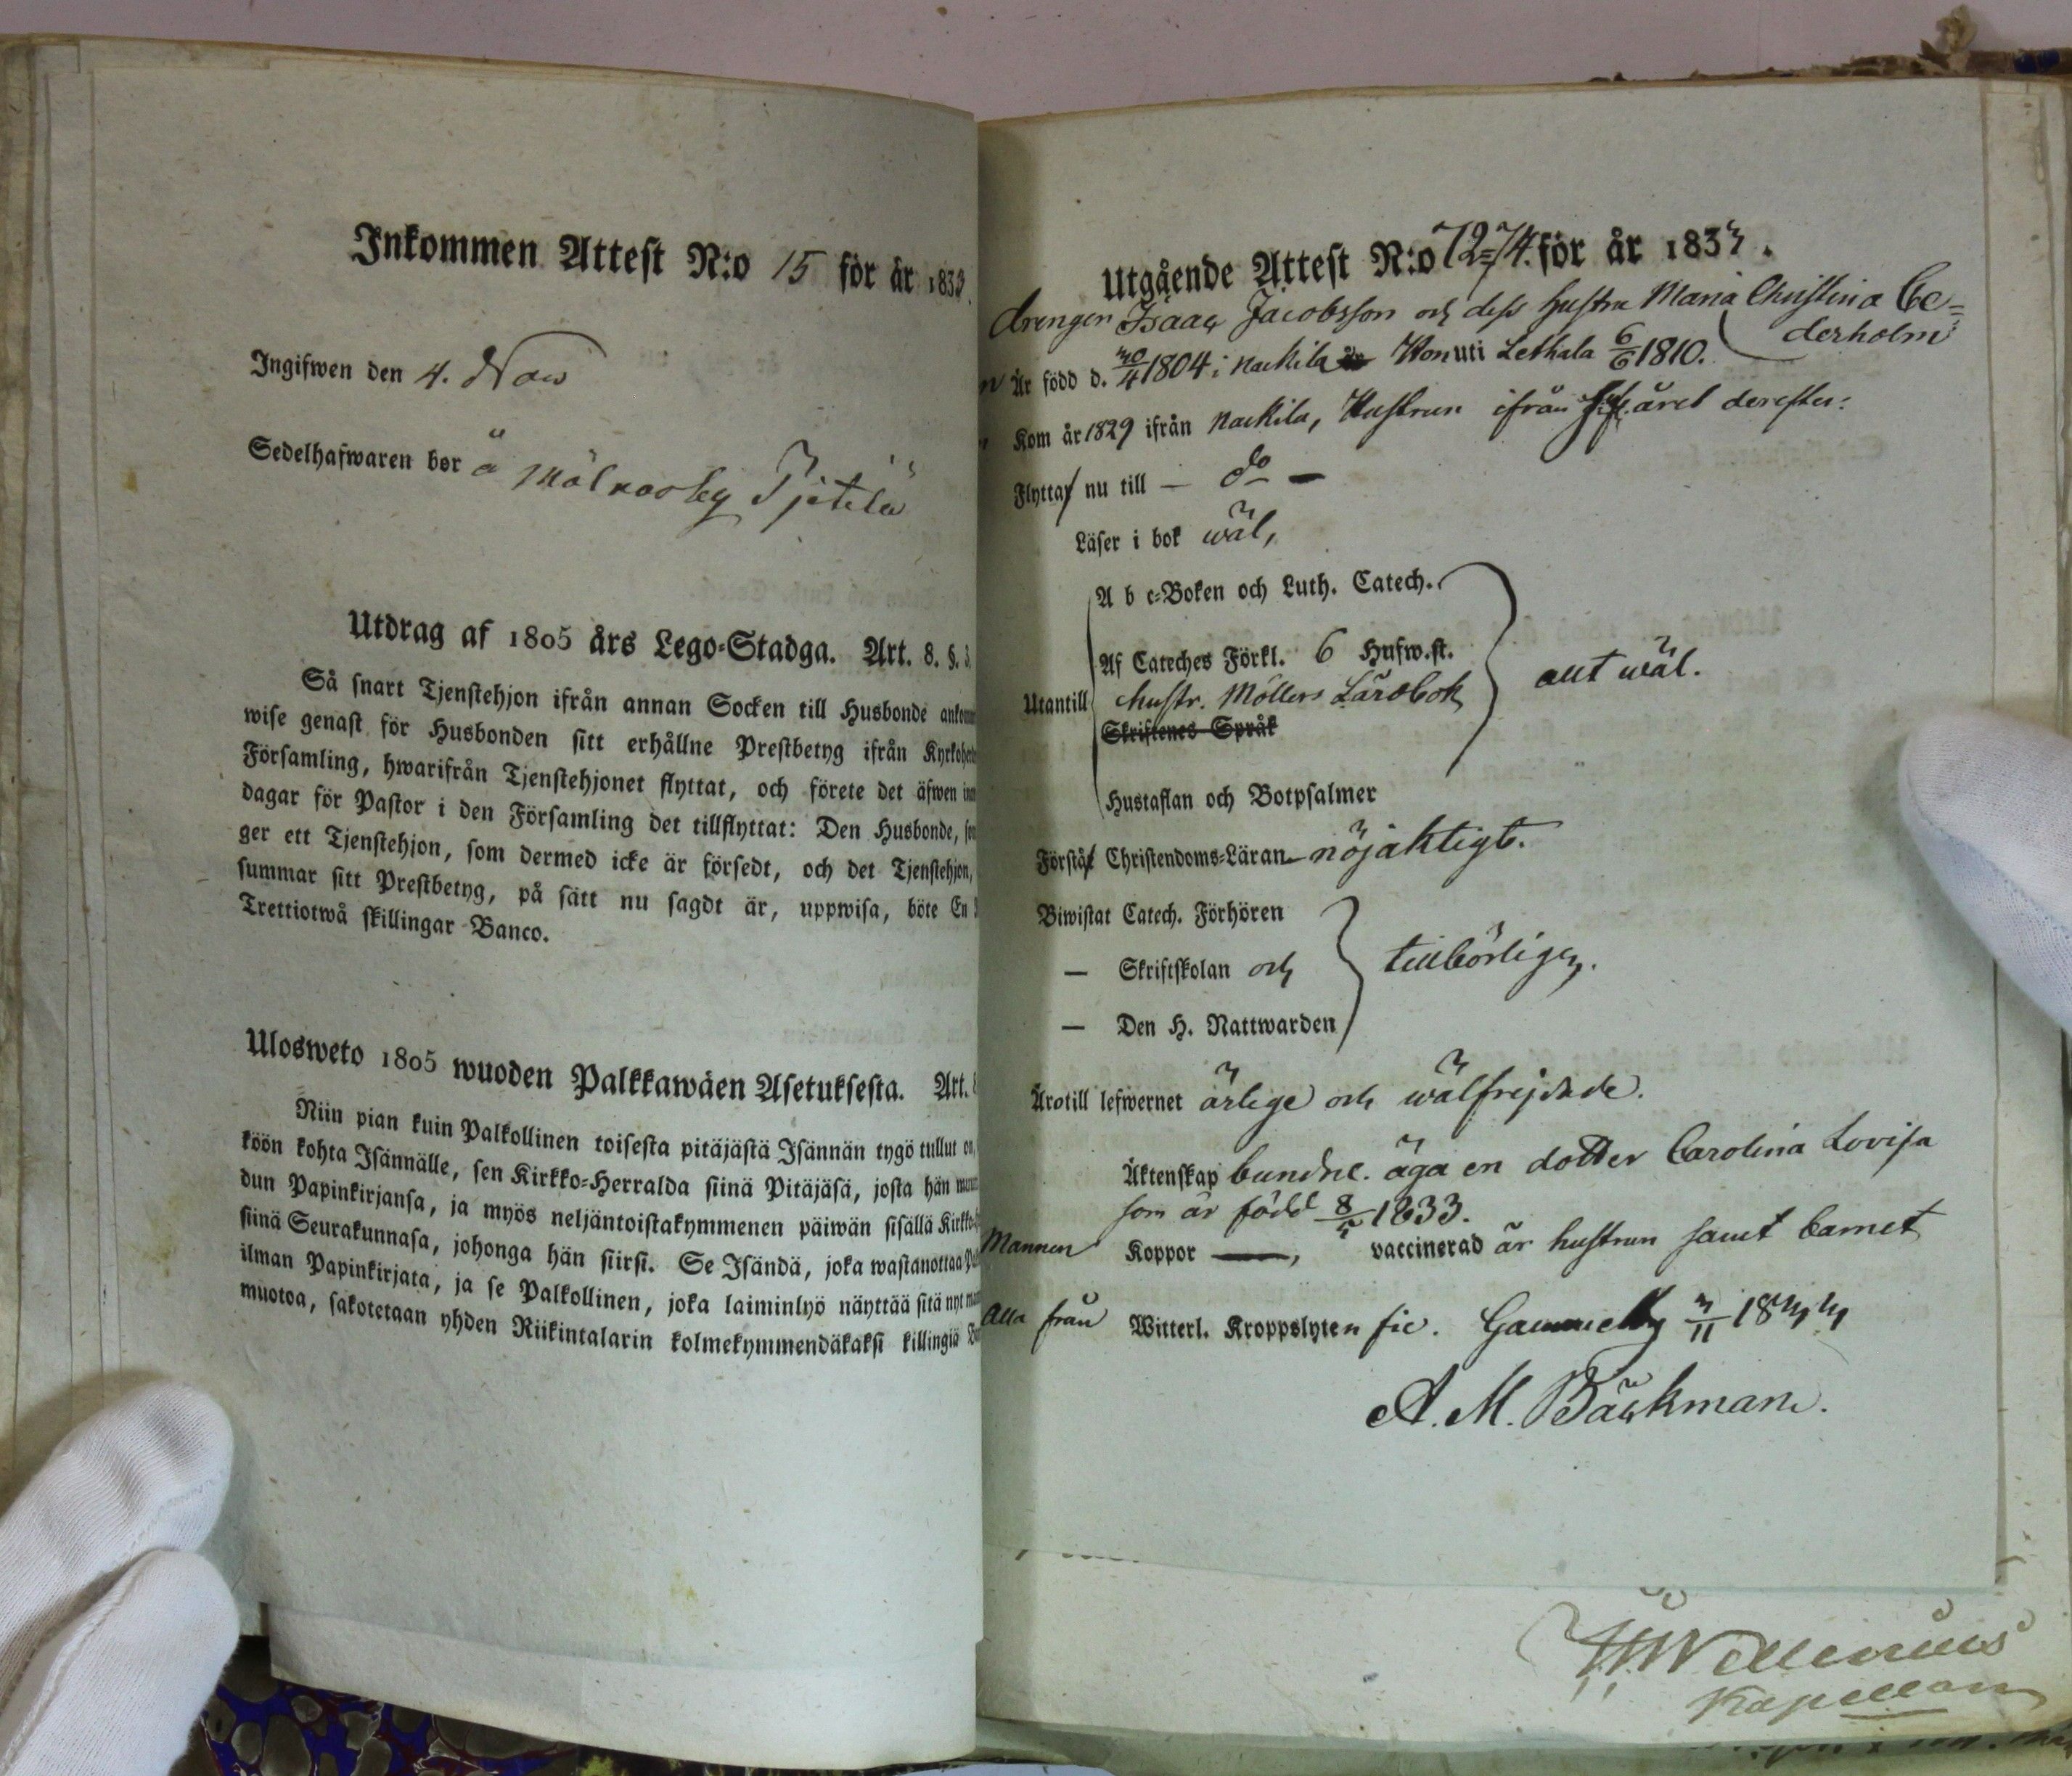 Inkommen Attest N:o 15 för år 1833.
Ingifwen den 4. Nov
Sedelhafwaren bor å
Utdrag af 1805 års Lego-Stadga. Art. 8. §. 3.
Så snart Tjenstehjon ifrån annan Socken till Husbonde
wise genast för Husbonden sitt erhållne Prestbetyg ifrån
Församling, hwarifrån Tjenstehjonet flyttat, och förete det äfwen
dagar för Pastor i den Församling det tillflyttat: Den Husbonde,
ger ett Tjenstehjon, som dermed icke är försedt, och det Tjenstehjon,
summar sitt Prestbetyg, på sätt nu sagdt är, uppwisa, böte En
Trettiotwå skillingar Banco.
Ulosweto 1805 wuoden Palkkawäen Asetuksesta. Art.
Niin pian kuin Palkollinen toisesta pitäjästä Isännän tygö tullut on,
köön kohta Isännälle, sen Kirkko-Herralda siinä Pitäjäsä, josta hän
dun Papinkirjansa, ja myös neljäntoistakymmenen päiwän sisällä
siinä Seurakunnasa, johonga hän siirsi. Se Isändä, joka wastanottaa
ilman Papinkirjata, ja se Palkollinen, joka laiminlyö näyttää sitä nyt
muotoa, sakotetaan yhden Riikintalarin kolmekymmendäkaksi killingiä
Utgående Attest N:o 72=74. för år 1833.
drengen Isaac Jacobsson och dess hustru Maria Christina Ce=
derholm
Är född d. 30/4 1804 i Nackila Hon uti Lethala 6/6 1810.
Kom år 1829 ifrån Nackila, Hustrun ifrån året derefter.
Flyttar nu till — do —
Läser i bok wäl,
A b c-Boken och Luth. Catech.
Af Cateches Förkl. 6 Hufw.st.
Utantill hustr. Möllers Lärobok allt wäl.
Skriftenes Språk
Hustaflan och Botpsalmer
Förstår Christendoms-Läran nöjaktigt.
Biwistat Catech. Förhören
— Skriftskolan och tillbörligen.
— Den H. Nattwarden
Äro till lefwernet ärlige och wälfrejdade.
Äktenskap bundne. äga en dotter Carolina Lovisa
som är född 8/5 1833.
Mannen Koppor —, vaccinerad är hustrun samt barnet
Alla från Witterl. Kroppslyten fic. Gammelby 3/11 1833
A. M. Bäckman.
Kapellan